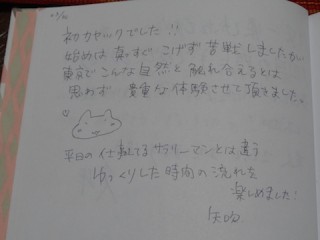 初カヤックでした!!
始めは真っすぐこげず苦戦しましたが
東京でこんな自然と触れ合えるとは
思わず 貴重な体験させて頂きました。
平日の仕事してるサラリーマンとは違う
ゆっくりした時間の流れを
楽しめました!
矢吹